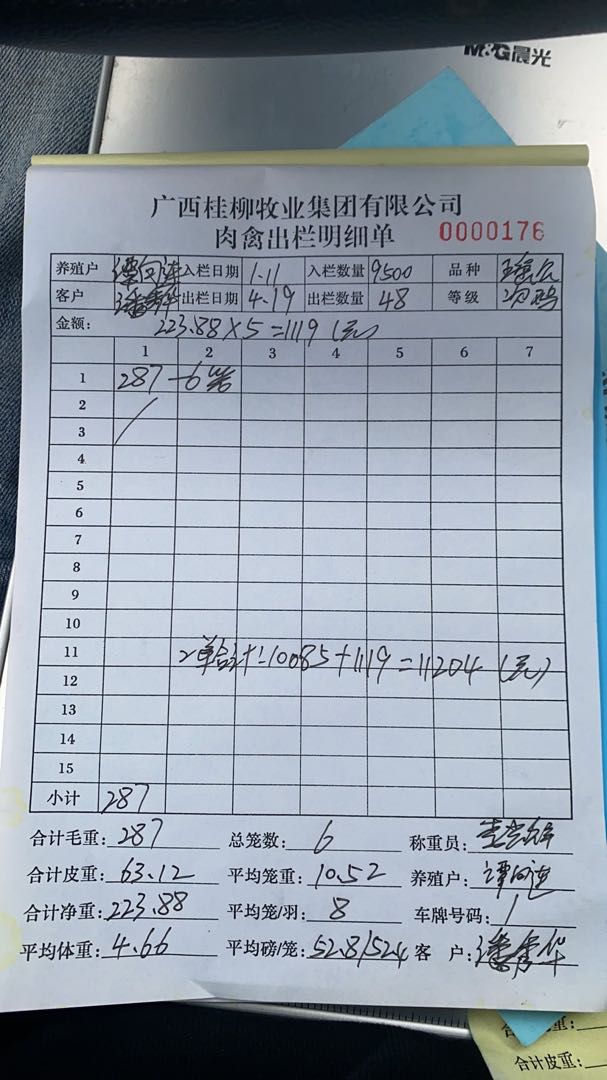 M&G晨光
广西桂柳牧业集团有限公司
肉禽出栏明细单 0000176
养殖户 入栏日期 1.11 入栏数量 9500 品种
客户 出栏日期 4.19 出栏数量 48 等级
金额: 223.88×5=1119(元)
1 2 3 4 5 6 7
1 287-6笼
2
3
4
5
6
7
8
9
10
11 2单合计:10085+1119=11204(元)
12
13
14
15
小计 287
合计毛重: 287 总笼数: 6 称重员:
合计皮重: 63.12 平均笼重: 10.52 养殖户:
合计净重: 223.88 平均笼/羽: 8 车牌号码: /
平均体重: 4.66 平均磅/笼: 52.8/52.4 客 户:
合计皮重: